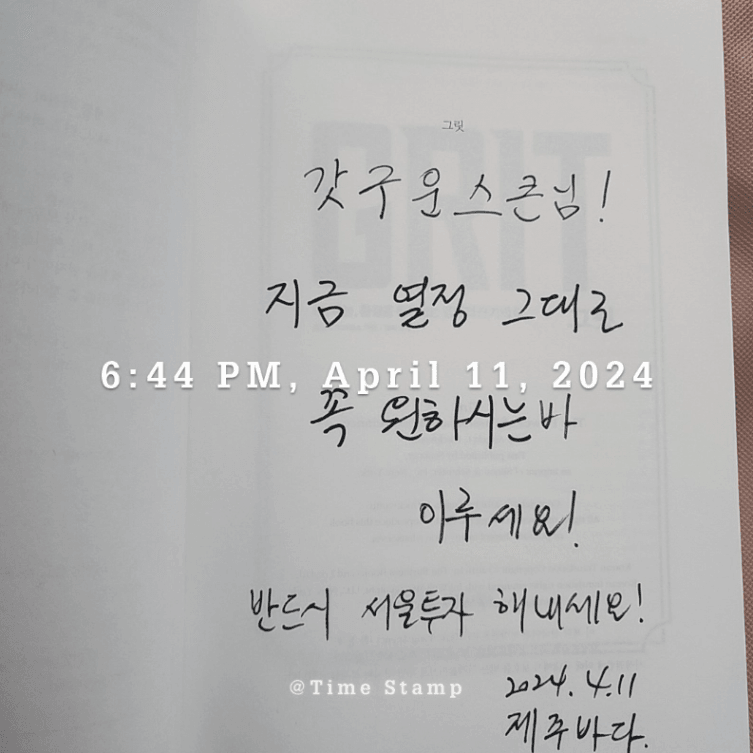 그릿
갓구운스콘님!
지금 열정 그대로
6:44 PM, April 11, 2024
꼭 원하시는바
이루세요!
반드시 서울투자 해내세요!
@Time Stamp
2024. 4.11
제주바다.